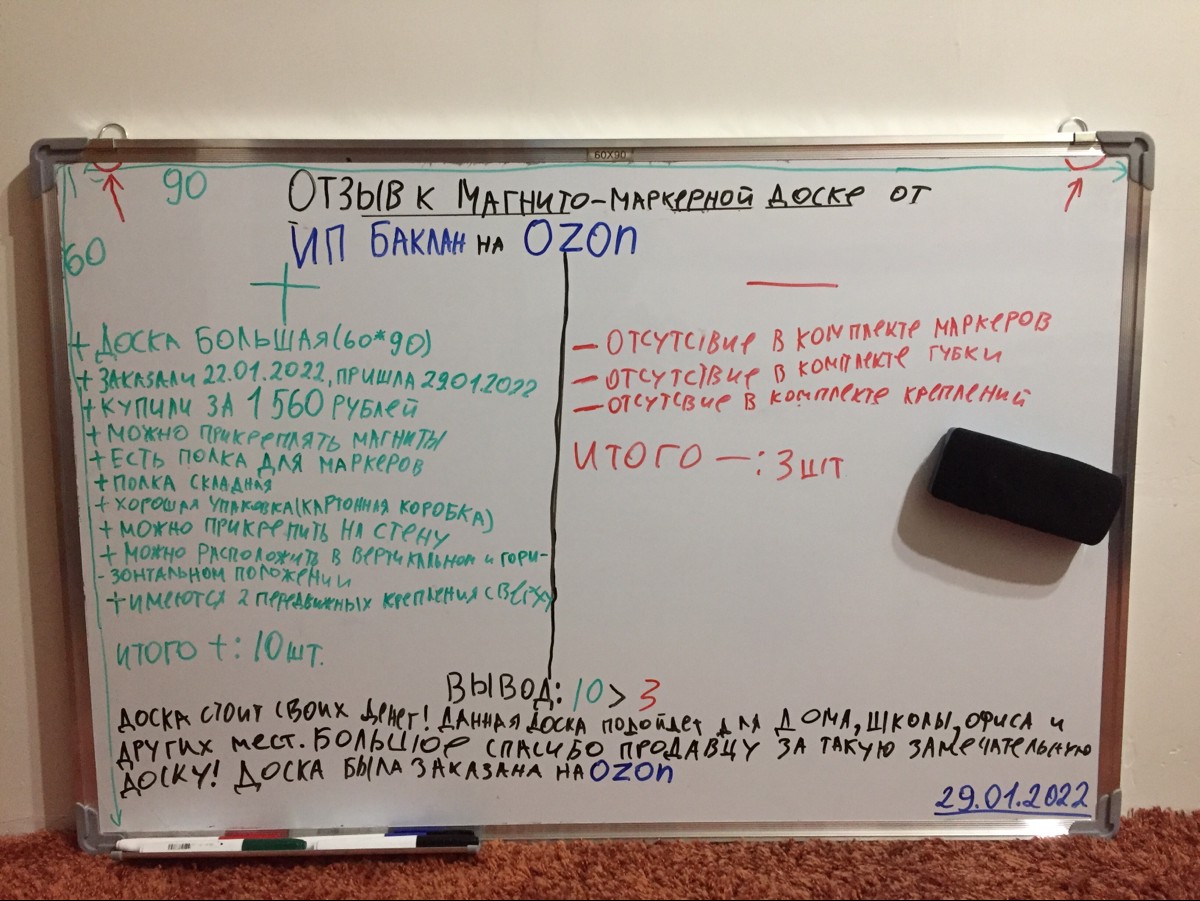 60X90
90
ОТЗЫВ К МАГНИТО-МАРКЕРНОЙ ДОСКЕ ОТ
60
ИП БАКЛАН НА OZON
+
+ ДОСКА БОЛЬШАЯ(60*90)
+ ЗАКАЗАЛИ 22.01.2022, ПРИШЛА 29.01.2022
+ КУПИЛИ ЗА 1 560 РУБЛЕЙ
+ МОЖНО ПРИКРЕПЛЯТЬ МАГНИТЫ
+ ЕСТЬ ПОЛКА ДЛЯ МАРКЕРОВ
+ ПОЛКА СКЛАДНАЯ
+ ХОРОШАЯ УПАКОВКА(КАРТОННАЯ КОРОБКА)
+ МОЖНО ПРИКРЕПИТЬ НА СТЕНУ
+ МОЖНО РАСПОЛОЖИТЬ В ВЕРТИКАЛЬНОМ И ГОРИ-
-ЗОНТАЛЬНОМ ПОЛОЖЕНИИ
+ ИМЕЮТСЯ 2 ПЕРЕДВИЖНЫХ КРЕПЛЕНИЯ СВЕРХУ
ИТОГО +: 10 ШТ.
—
— ОТСУТСТВИЕ В КОМПЛЕКТЕ МАРКЕРОВ
— ОТСУТСТВИЕ В КОМПЛЕКТЕ ГУБКИ
— ОТСУТСВИЕ В КОМПЛЕКТЕ КРЕПЛЕНИЙ
ИТОГО —: 3 ШТ
ВЫВОД: 10 > 3
ДОСКА СТОИТ СВОИХ ДЕНЕГ! ДАННАЯ ДОСКА ПОДОЙДЕТ ДЛЯ ДОМА, ШКОЛЫ, ОФИСА И
ДРУГИХ МЕСТ. БОЛЬШОЕ СПАСИБО ПРОДАВЦУ ЗА ТАКУЮ ЗАМЕЧАТЕЛЬНУЮ
ДОСКУ! ДОСКА БЫЛА ЗАКАЗАНА НА OZON
29.01.2022